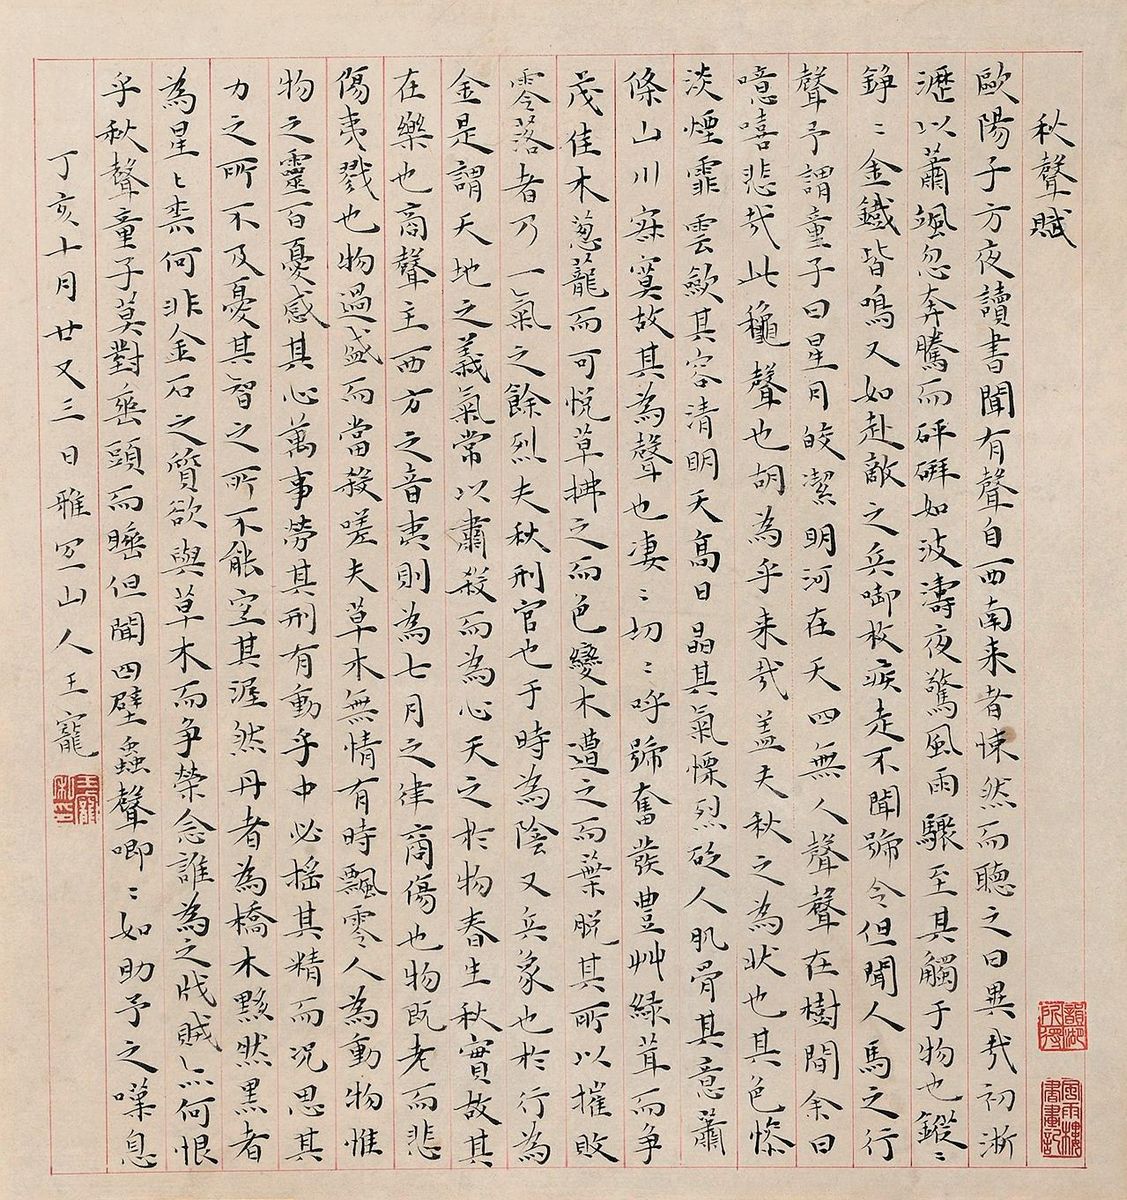 秋聲賦
歐陽子方夜讀書聞有聲自西南来者悚然而聽之曰異㢤初淅
瀝以蕭颯忽奔騰而砰硑如波濤夜驚風雨驟至其觸于物也鏦〻
錚〻金鐵皆鳴又如赴敵之兵啣枚疾走不聞號令但聞人馬之行
聲予謂童子曰星月皎潔明河在天四無人聲聲在樹間余曰
噫嘻悲㢤此龝聲也胡為乎来㢤盖夫秋之為状也其色惨
淡煙霏雲歛其容清明天髙日晶其氣慄烈砭人肌骨其意蕭
條山川寂寞故其為聲也凄〻切〻呼號奮發豊艸緑茸而争
茂佳木葱蘢而可悦草拂之而色變木遭之而葉脱其所以摧敗
零落者乃一氣之餘烈夫秋刑官也于時為陰又兵象也於行為
金是謂天地之義氣常以肅殺而為心天之於物春生秋實故其
在樂也商聲主西方之音夷則為七月之律商傷也物既老而悲
傷夷戮也物過盛而當殺嗟夫草木無情有時飄零人為動物惟
物之靈百憂感其心萬事勞其刑有動乎中必揺其精而况思其
力之所不及憂其智之所不能宜其渥然丹者為槁木黟然黒者
為星〻柰何非金石之質欲與草木而争榮念誰為之戕賊亦何恨
乎秋聲童子莫對垂頭而睡但聞四壁蟲聲唧〻如助予之嘆息
丁亥十月廿又三日雅宜山人王寵
王寵私印
韻湖所得
風雨樓書畫記